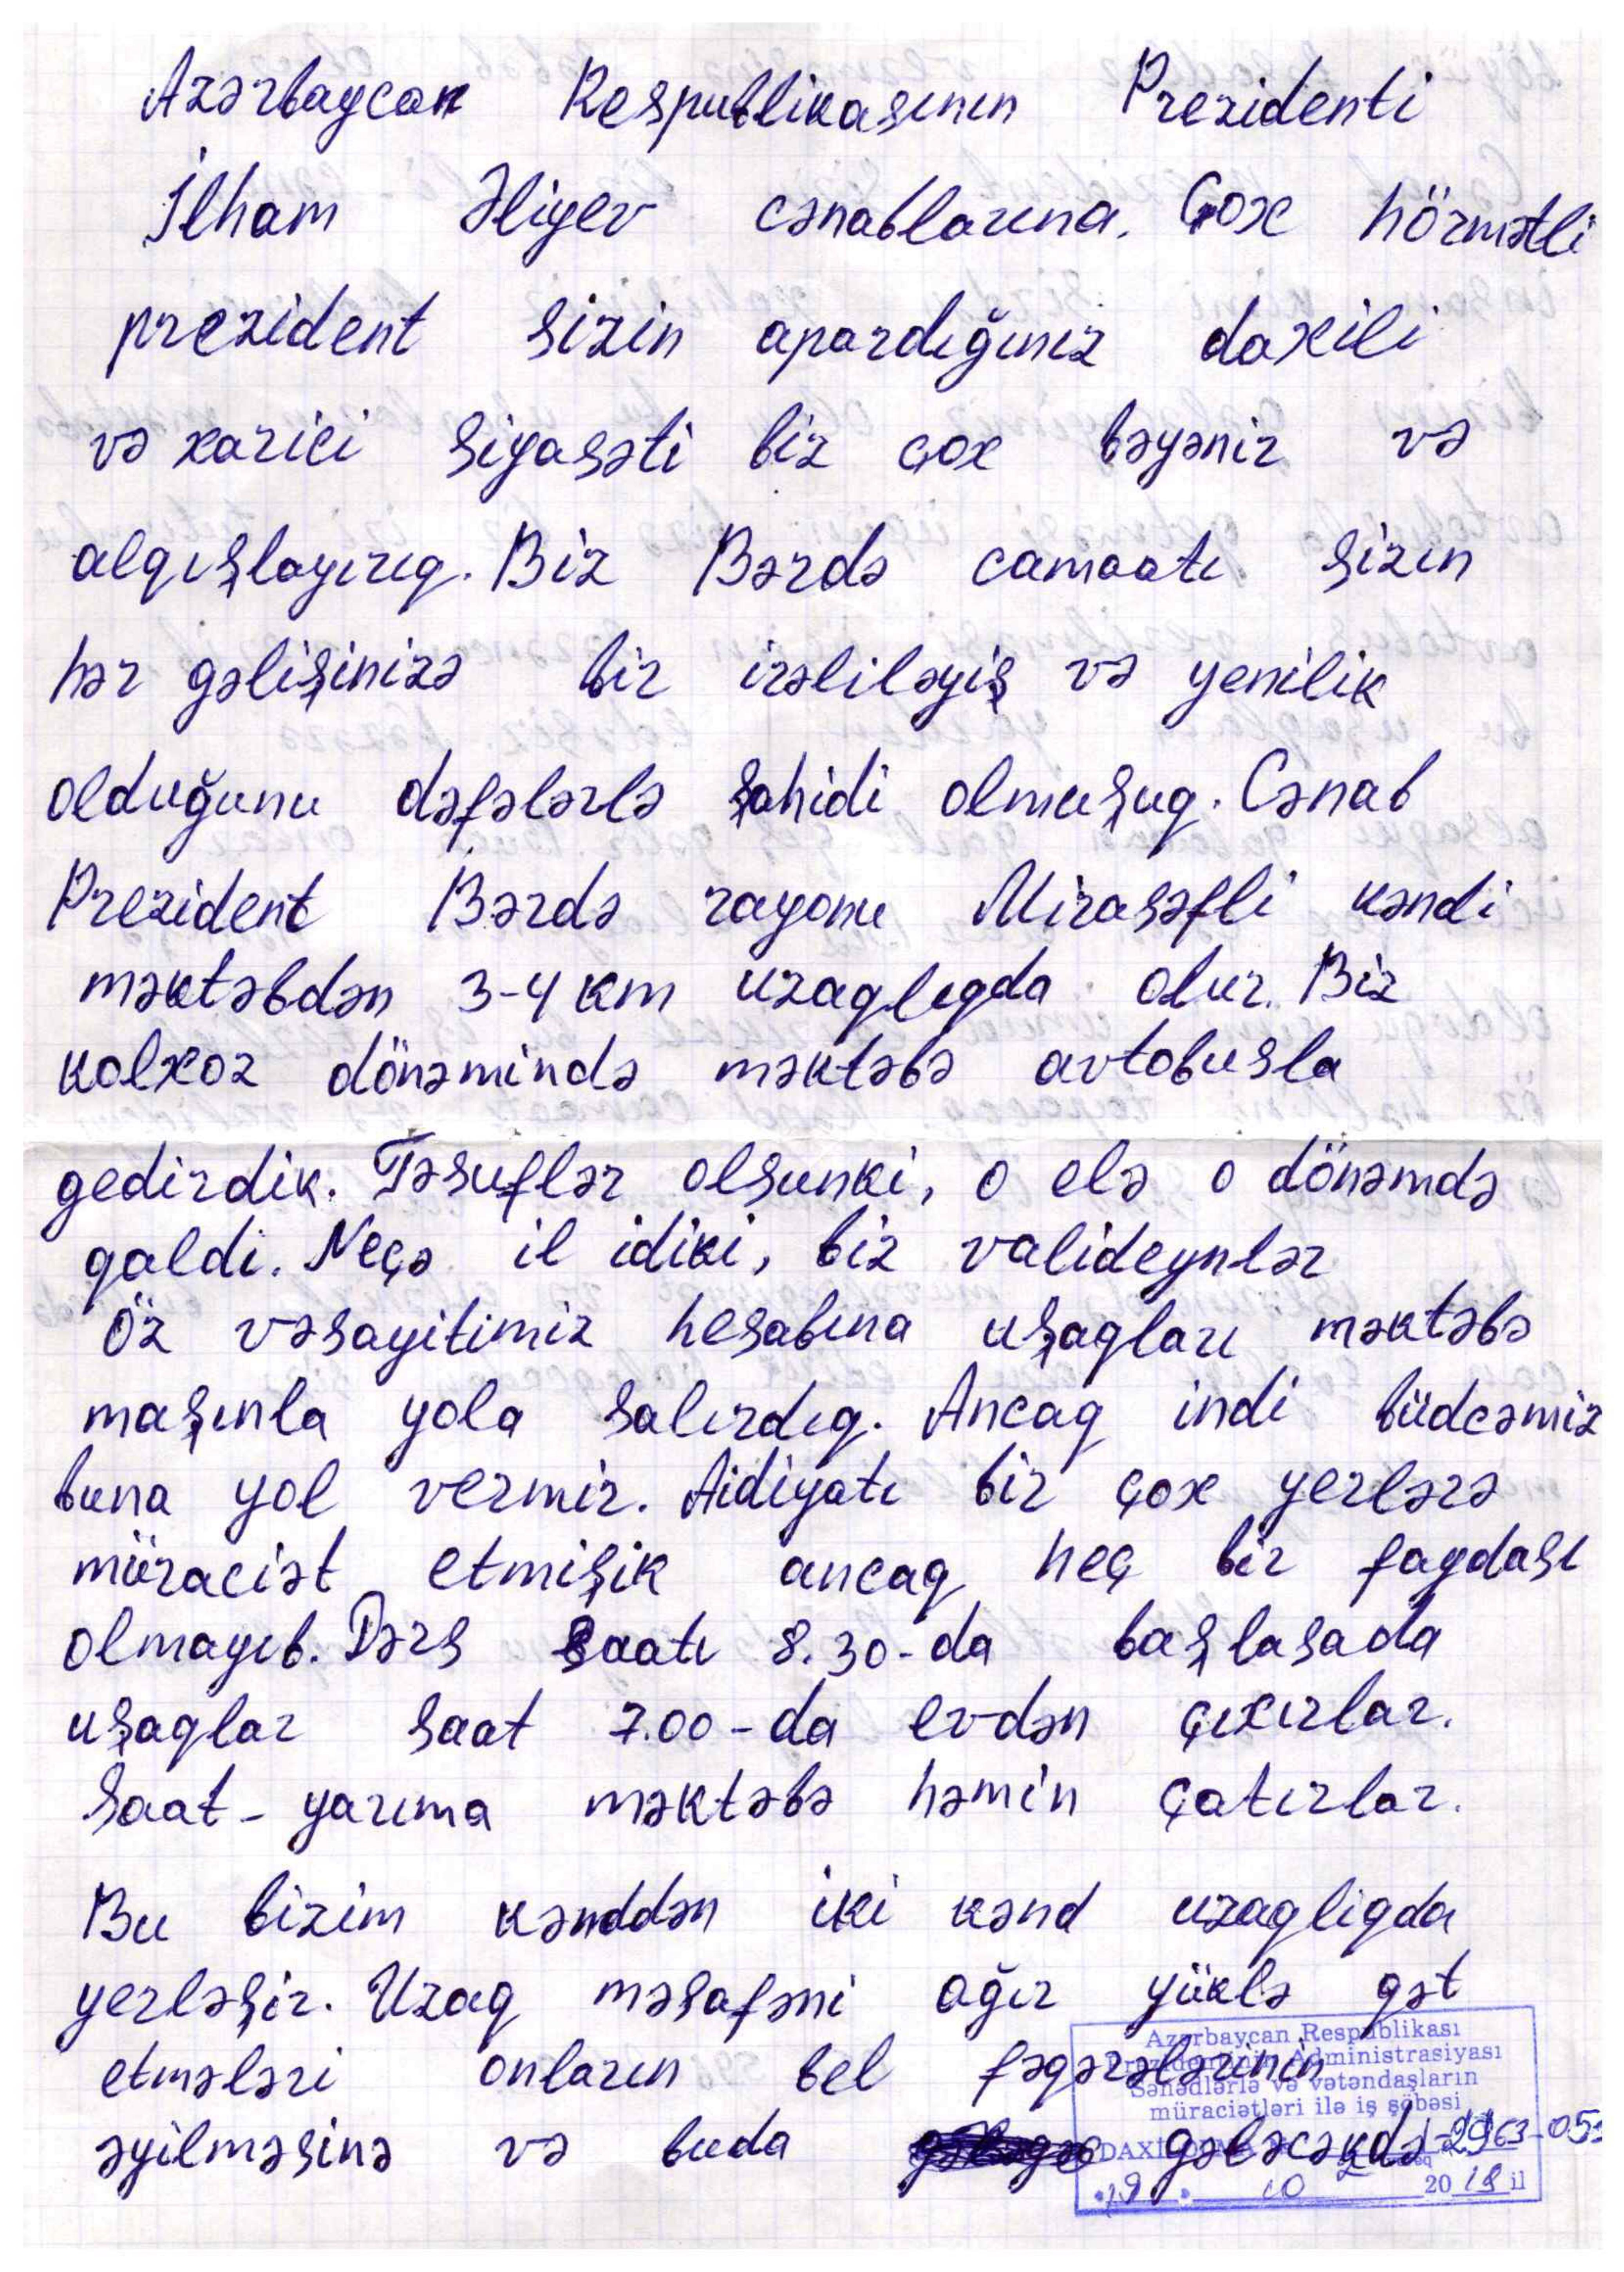 Azərbaycan Respublikasının Prezidenti
İlham Əliyev cənablarına. Çox hörmətli
prezident sizin apardığınız daxili
və xarici siyasəti biz çox bəyənir və
alqışlayırıq. Biz Bərdə camaatı sizin
hər gəlişinizə bir irəliləyiş və yenilik
olduğunu dəfələrlə şahidi olmuşuq. Cənab
Prezident Bərdə rayonu Mirasəfli kəndi
məktəbdən 3-4 km uzaqlıqda olur. Biz
kolxoz dönəmində məktəbə avtobusla
gedirdik. Təsuflər olsunki, o elə o dönəmdə
qaldi. Neçə il idiki, biz valideynlər
Öz vəsayitimiz hesabına uşaqları məktəbə
maşınla yola salırdıq. Ancaq indi büdcəmiz
buna yol vermir. Aidiyatı bir çox yerlərə
müraciət etmişik ancaq heç bir faydası
olmayıb. Dərs saatı 8.30-da başlasada
uşaqlar saat 7.00-da evdən çıxırlar.
Saat-yarıma məktəbə həmin çatırlar.
Bu bizim kənddən iki kənd uzaqliqda
yerləşir. Uzaq məsafəni ağır yüklə qət
etmələri onların bel fəqərələrinin
əyilməsinə və buda gələcəkdə
Azərbaycan Respublikası
Prezidentinin Administrasiyası
Sənədlərlə və vətəndaşların
müraciətləri ilə iş şöbəsi
DAXİL OLMA 2963-05
"19" 10 2018 il